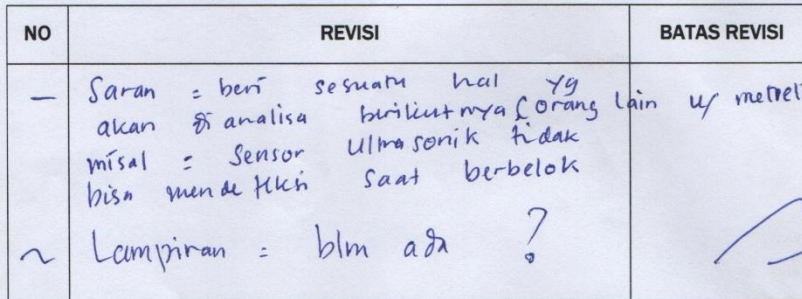 NO REVISI BATAS REVISI
— Saran = beri sesuatu hal yg
akan di analisa berikutnya (orang lain u/
misal = Sensor Ultrasonik tidak
bisa mendeteksi saat berbelok
~ Lampiran = blm ada ?